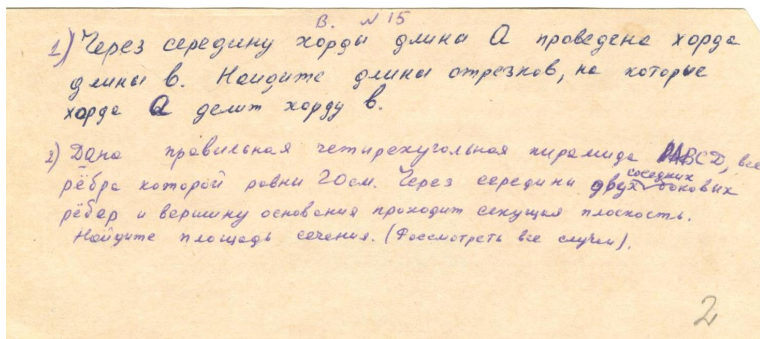 В. №15
1) Через середину хорды длины а проведена хорда
длины в. Найдите длины отрезков, на которые
хорда а делит хорду в.
2) Дана правильная четырехугольная пирамида MABCD, все
рёбра которой равны 20см. Через середины двух соседних боковых
рёбер и вершину основания проходит секущая плоскость.
Найдите площадь сечения. (Рассмотреть все случаи).
2